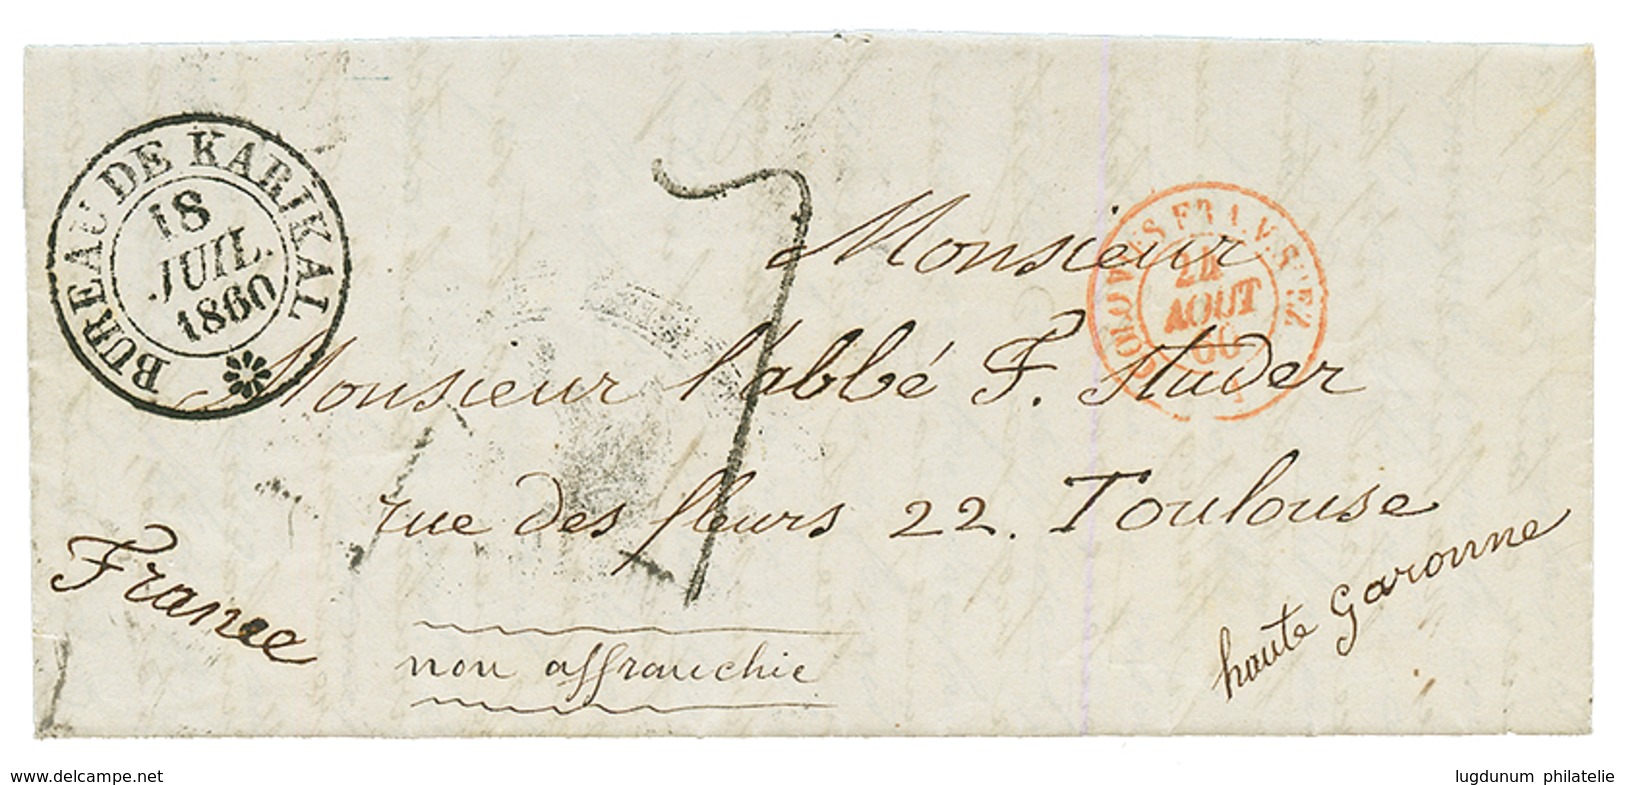 BUREAU DE KARIKAL
18
JUIL.
1860
7
COL. FRA. V. SUEZ
24
AOUT
60
Monsieur
Monsieur l'abbé F. Studer
rue des fleurs 22. Toulouse
haute Garonne
France
non affranchie
www.delcampe.net
lugdunum philatelie